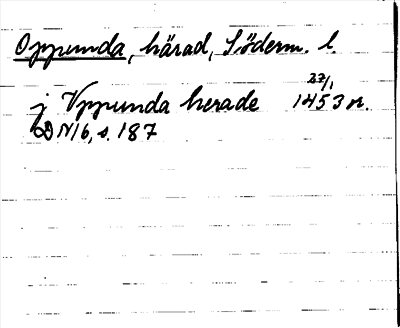 Oppunda, härad, Söderm. l.
j Vppunda herade 27/1 1453 or.
D N16, s. 187